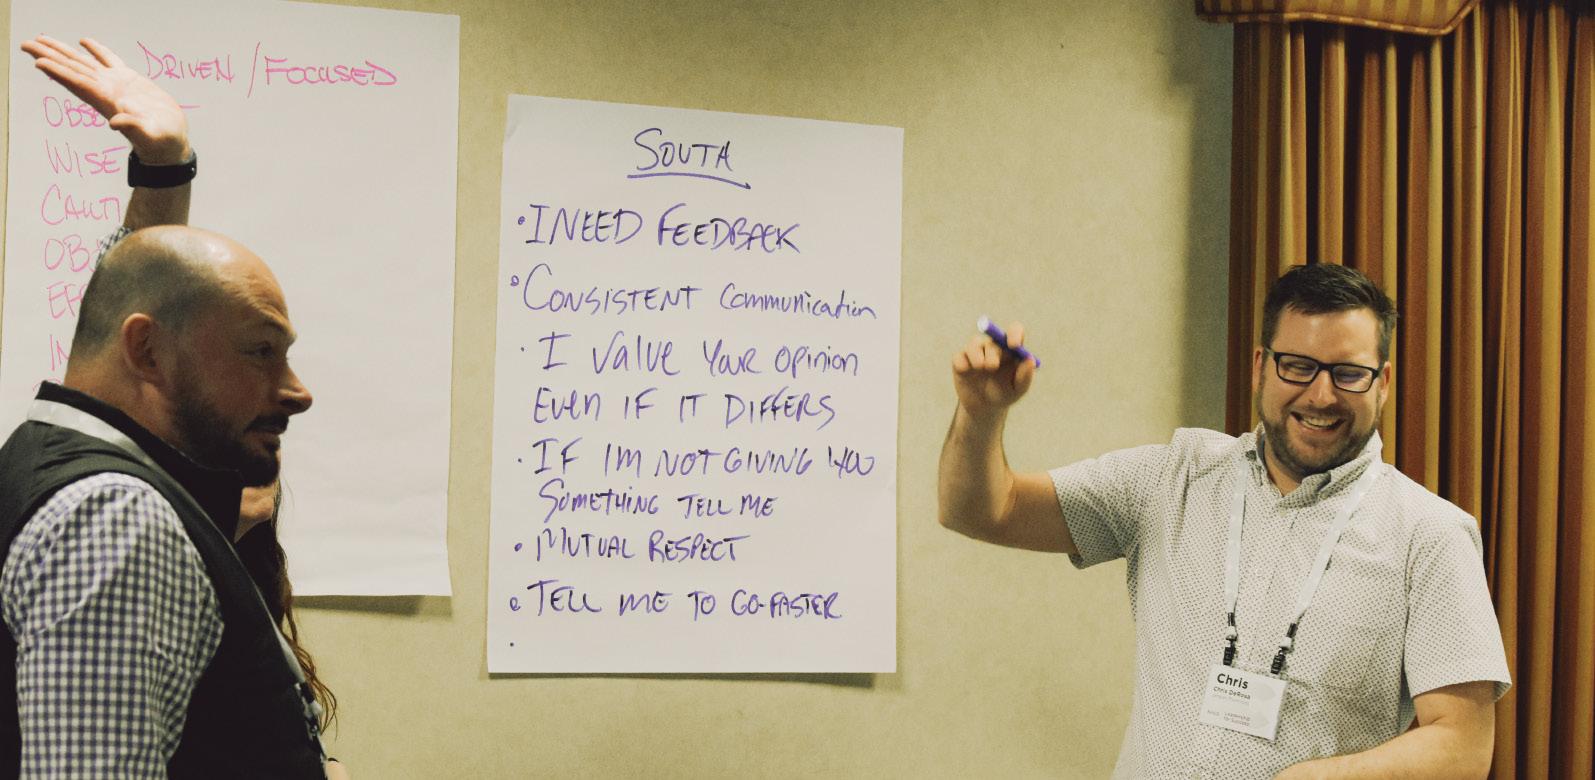 DRIVEN / FOCUSED
WISE
SOUTH
• I NEED FEEDBACK
• CONSISTENT Communication
• I Value Your Opinion
Even IF IT DIFFERS
• IF IM NOT GIVING YOU
SOMETHING TELL ME
• MUTUAL RESPECT
• TELL ME TO GO FASTER
•
Chris
Chris DeRosa
Leadership
for Success